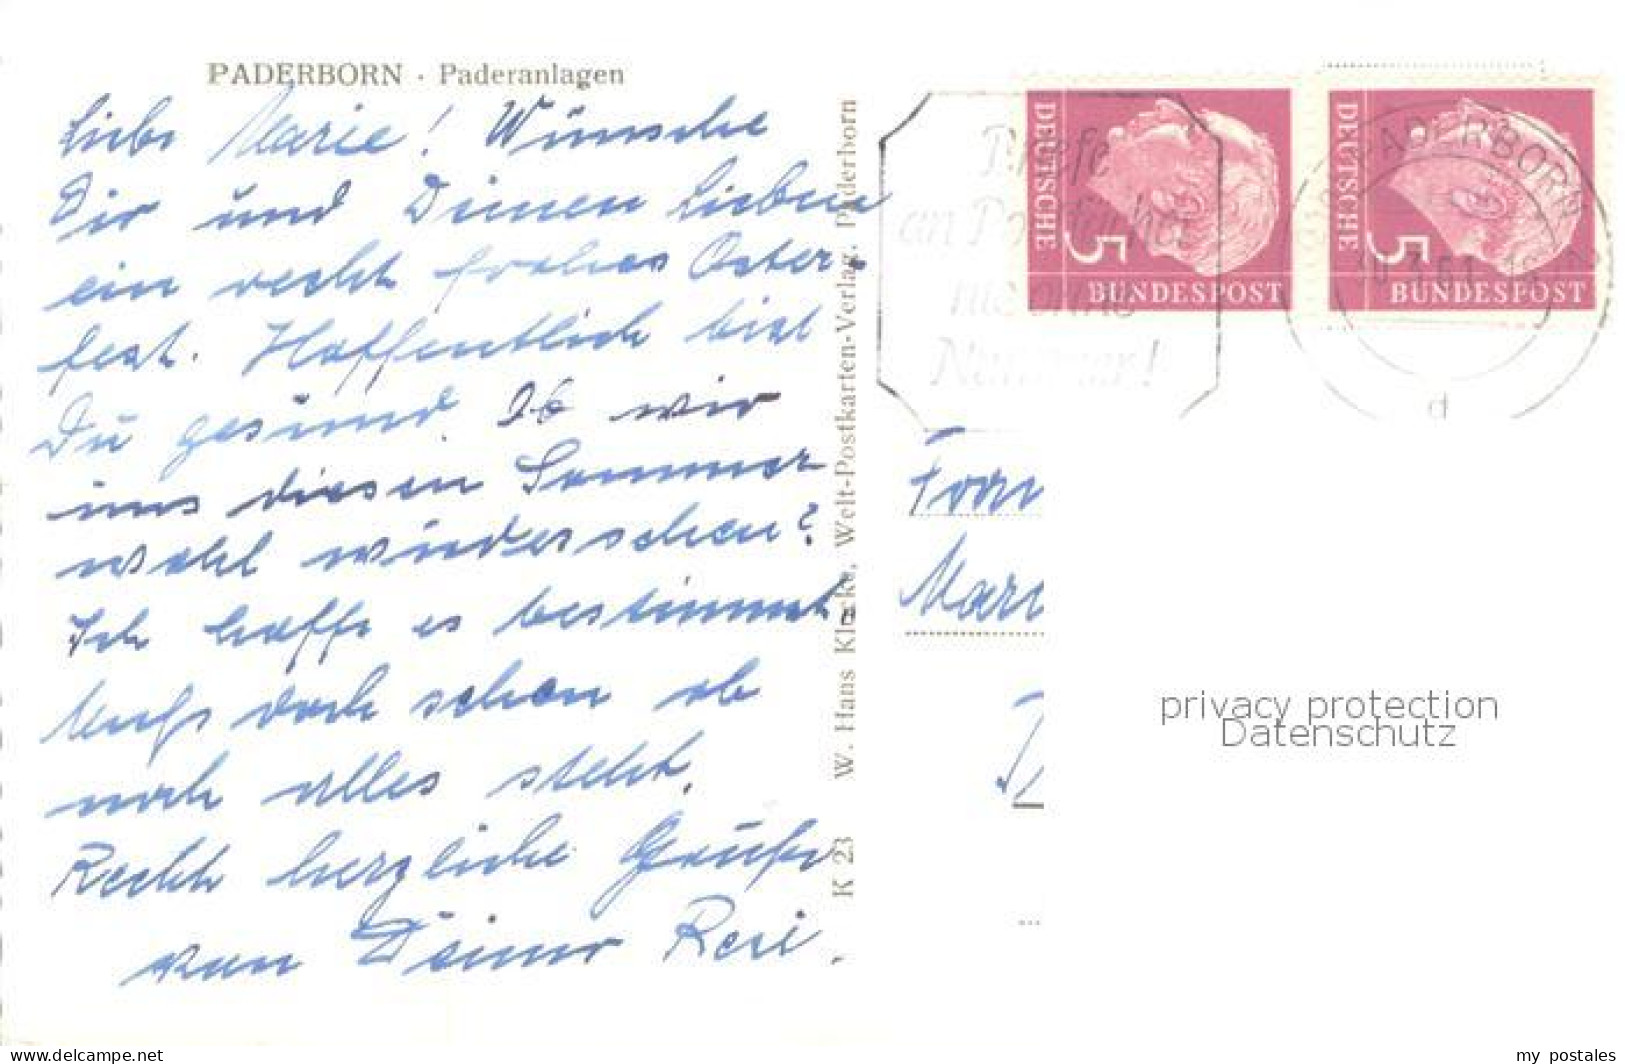 PADERBORN · Paderanlagen
Liebe Marie! Wünsche
Dir und Deinen Lieben
ein recht frohes Oster-
fest. Hoffentlich bist
Du gesund. Ob wir
uns diesen Sommer
wohl wiedersehen?
Ich hoffe es bestimmt.
Muß doch schon ob
noch alles steht.
Recht herzliche Grüße
von Deiner Resi.
K 23 W. Hans Klocke, Welt-Postkarten-Verlag, Paderborn
Briefe
an Postfächer
nie ohne
Nummer!
DEUTSCHE
5
BUNDESPOST
DEUTSCHE
5
BUNDESPOST
PADERBORN
d
Frau
Mari
privacy protection
Datenschutz
my postales